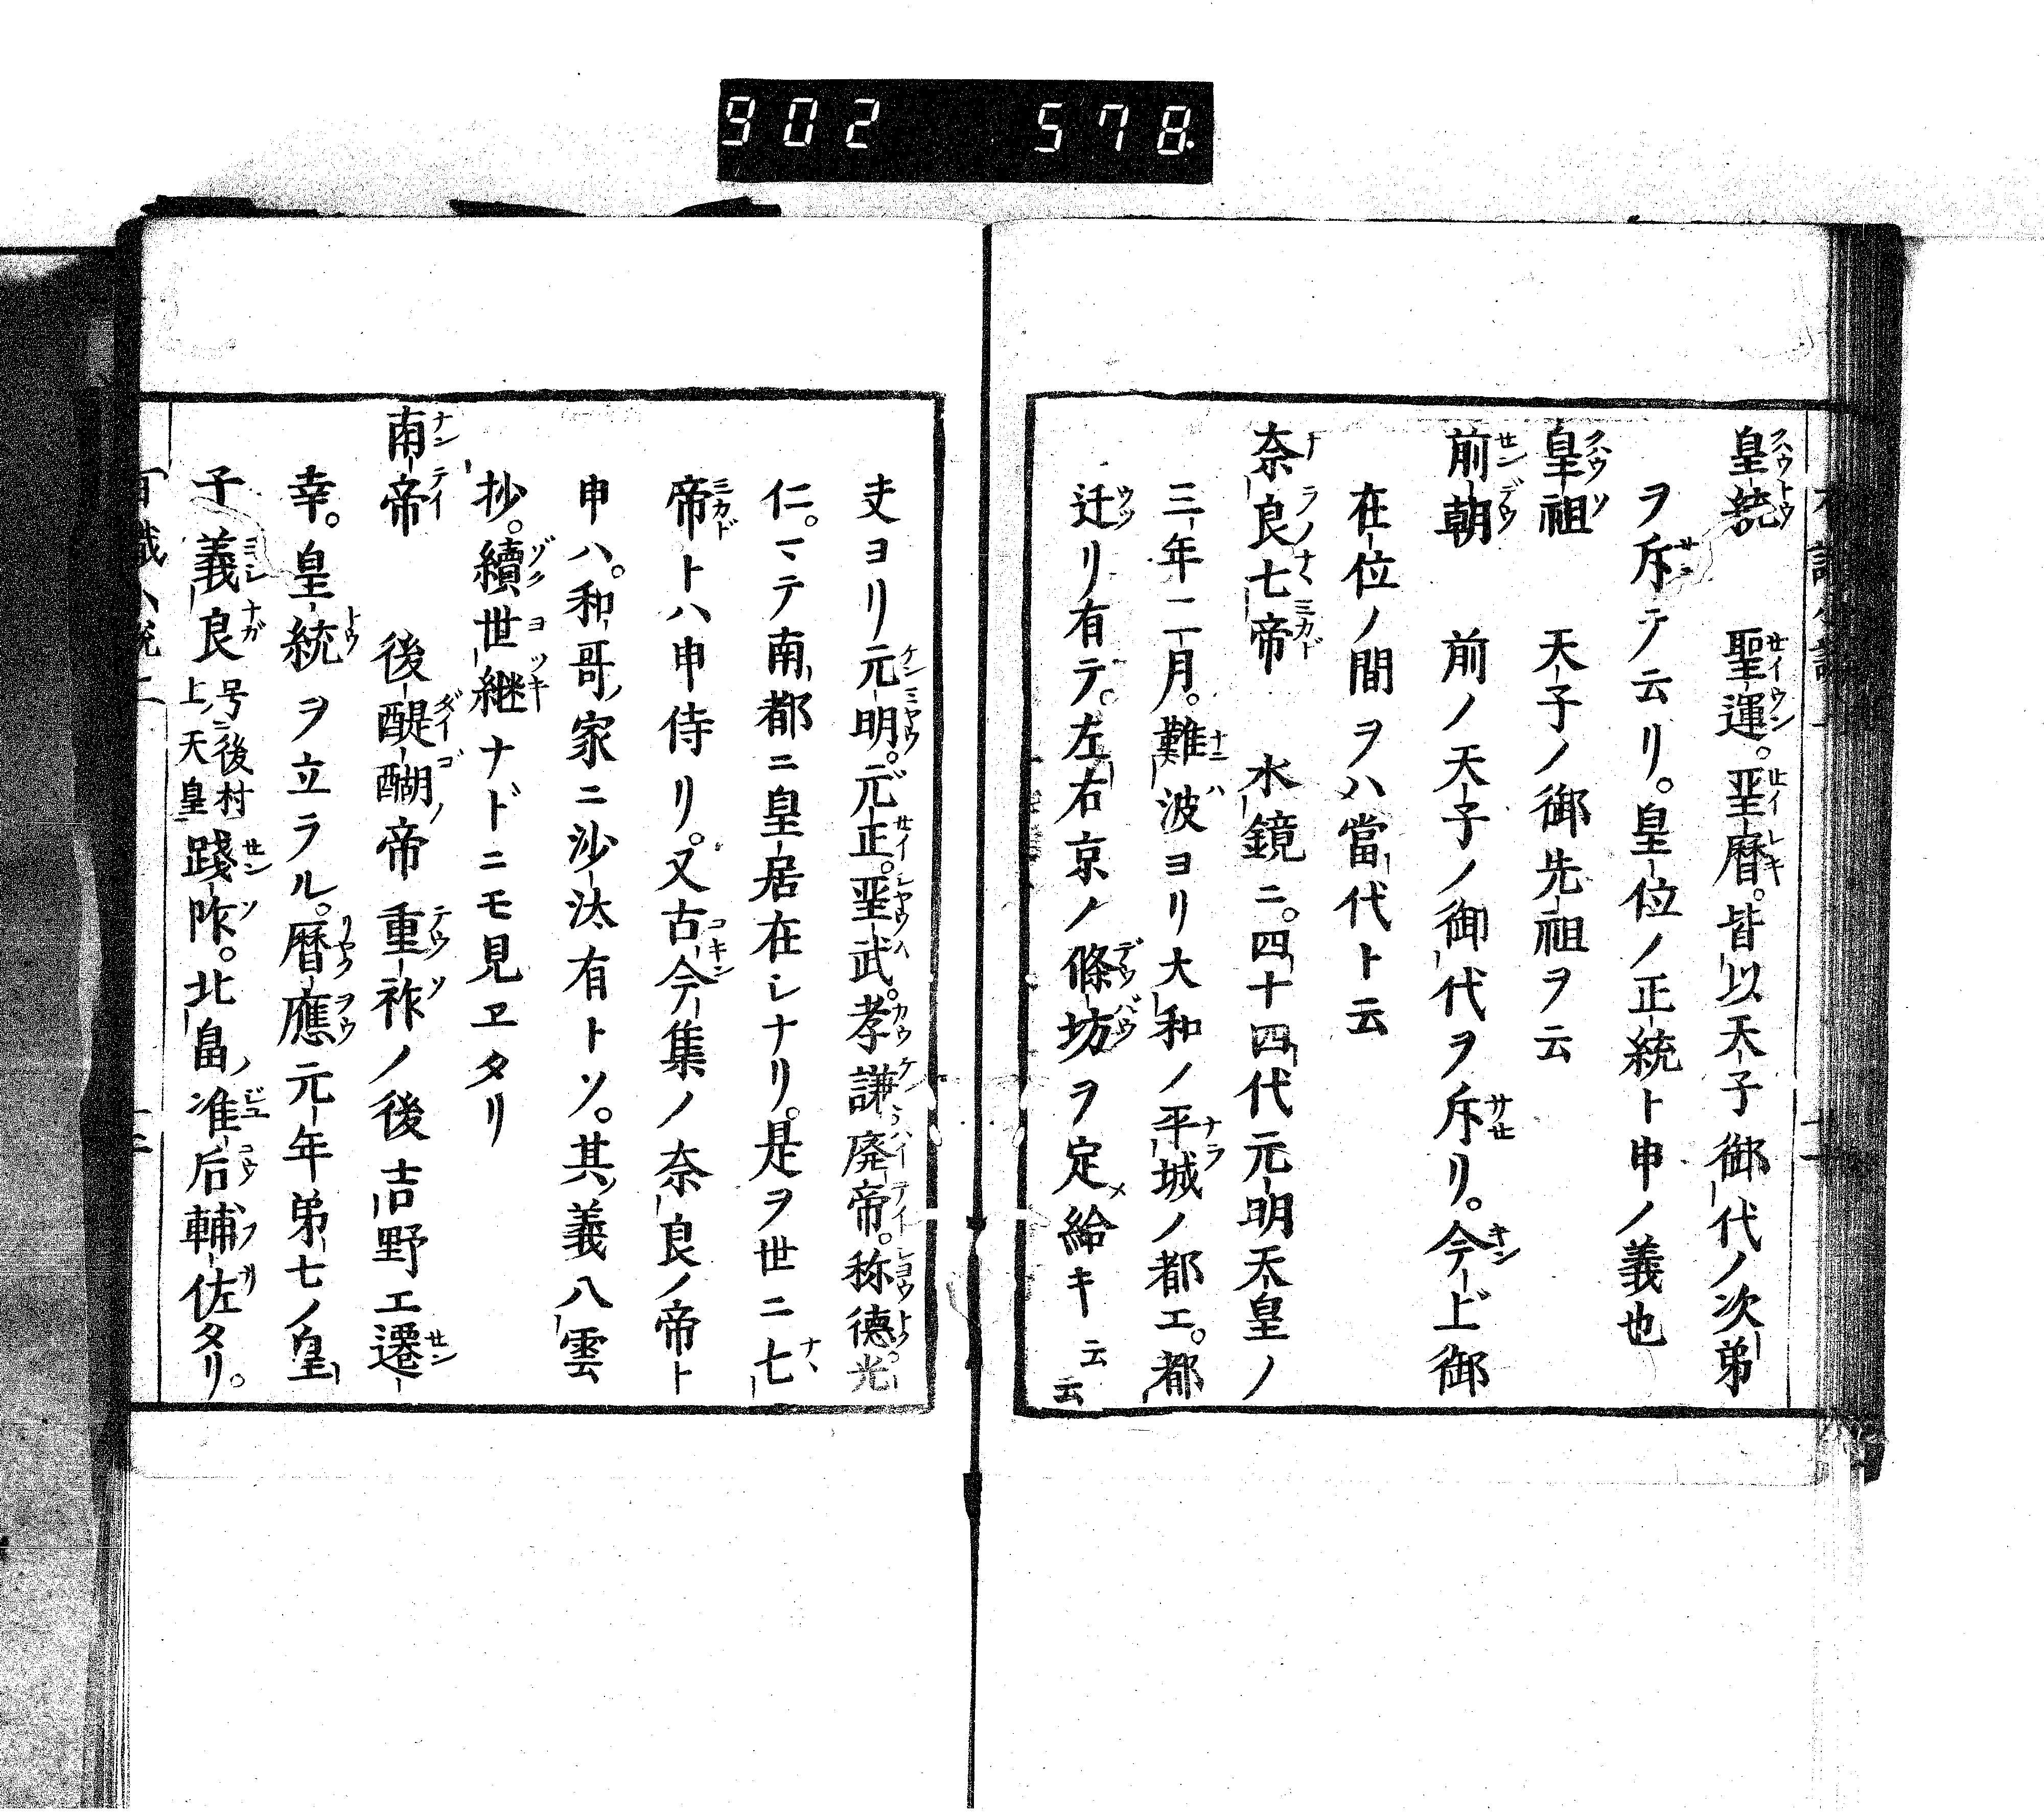 902 578
皇統 聖運。聖暦。皆以天子御代ノ次第
ヲ斥テ云リ。皇位ノ正統ト申ノ義也
皇祖 天子ノ御先祖ヲ云
前朝 前ノ天子ノ御代ヲ斥リ。今上御
在位ノ間ヲハ當代ト云
奈良七帝 水鏡ニ。四十四代元明天皇ノ
三年二月。難波ヨリ大和ノ平城ノ都エ。都
迁リ有テ。左右京ノ條坊ヲ定メ給キ云云
夫ヨリ元明。元正。聖武。孝謙廃帝。称徳。光
仁。マテ南都ニ皇居在シナリ。是ヲ世ニ七
帝トハ申侍リ。又古今集ノ奈良ノ帝ト
申ハ。和哥ノ家ニ沙汰有トソ。其義八雲
抄。續世継ナドニモ見ヱタリ
南帝 後醍醐ノ帝重祚ノ後吉野エ遷
幸。皇統ヲ立ラル。暦應元年第七ノ皇
子義良号ニ後村上ノ天皇踐祚。北畠ノ准后輔佐タリ。